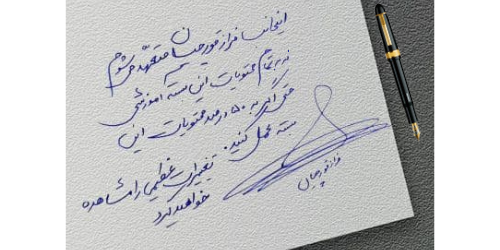 اینجانب فراز قورچیان متعهد می‌شوم
نه به تمام محتویات این بسته آموزشی
حتی اگر به ۵۰ درصد محتویات این
بسته عمل کنید. تغییرات عظیمی را مشاهده
خواهید کرد
فراز قورچیان